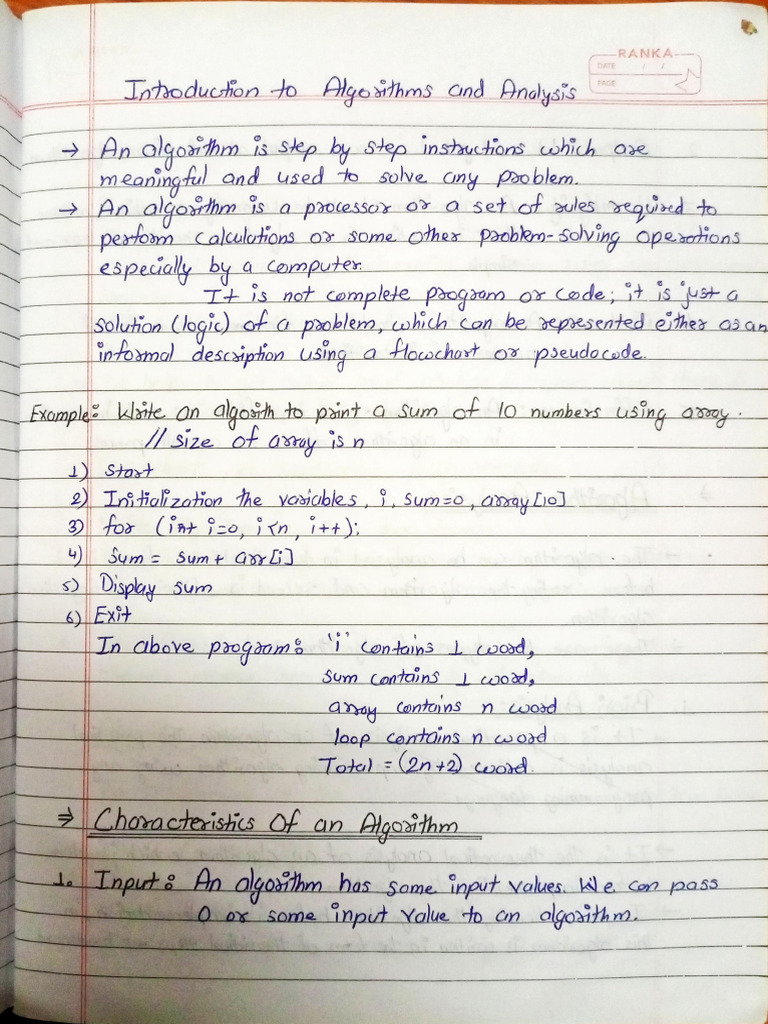 RANKA
DATE / /
PAGE
Introduction to Algorithms and Analysis
→ An algorithm is step by step instructions which are
meaningful and used to solve any problem.
→ An algorithm is a processor or a set of rules required to
perform calculations or some other problem-solving operations
especially by a computer.
It is not complete program or code; it is just a
solution (logic) of a problem, which can be represented either as an
informal description using a flowchart or pseudocode.
Example: Write an algorith to print a sum of 10 numbers using array.
// size of array is n
1) Start
2) Initialization the variables, i, sum=0, array[10]
3) for (int i=0, i<n, i++);
4) sum = sum + arr[i]
5) Display sum
6) Exit
In above program: 'i' contains 1 word,
sum contains 1 word,
array contains n word
loop contains n word
Total = (2n+2) word.
⇒ Characteristics Of an Algorithm
1. Input: An algorithm has some input values. We can pass
0 or some input value to an algorithm.